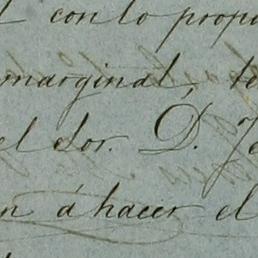 con lo propu
marginal, te
el Sor. D. Ja
n á hacer el